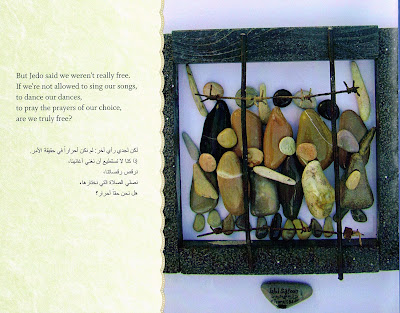 But Jedo said we weren't really free.
If we're not allowed to sing our songs,
to dance our dances,
to pray the prayers of our choice,
are we truly free?
لكن لجدي رأي آخر: لم نكن أحراراً في حقيقة الأمر.
إذا كنا لا نستطيع أن نغني أغانينا،
نرقص رقصاتنا،
نصلي الصلاة التي نختارها،
هل نحن حقاً أحرار؟